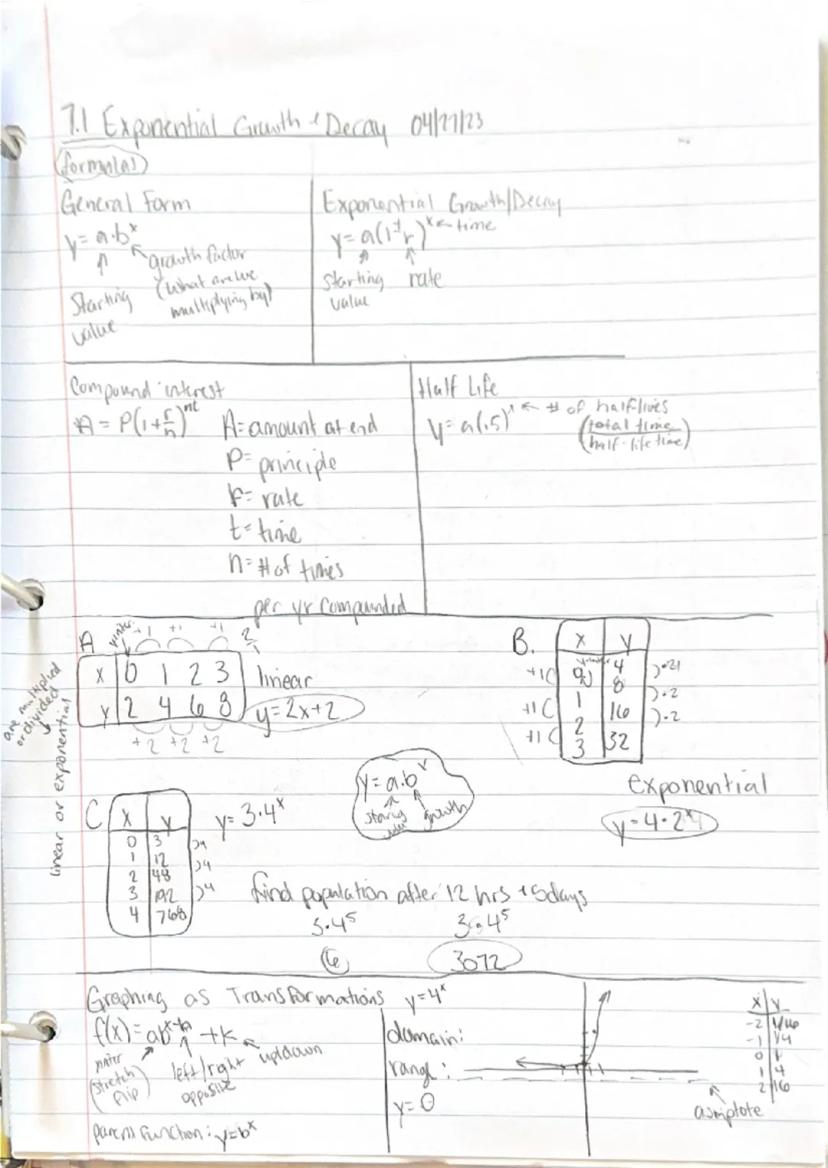 7.1 Exponential Growth & Decay 04/27/23
formula(s)
General Form
y = a·b^x
growth factor
(what are we
multiplying by)
Starting
value
Exponential Growth/Decay
y = a(1±r)^x ← time
starting rate
value
Compound interest
A = P(1+r/n)^nt
A = amount at end
P = principle
r = rate
t = time
n = # of times
per yr compounded
Half Life
y = a(.5)^x ← # of half-lives
(total time/half-life time)
are multiplied
or divided
linear or exponential
A
+1 +1 +1 2/1
x 0 1 2 3
y 2 4 6 8
+2 +2 +2
linear
y = 2x+2
B.
x y
0 4
1 8
2 16
3 32
+1
+1
+1
·2
·2
·2
exponential
y = 4·2^x
y = a·b^x
starting growth
value
C
x y
0 3
1 12
2 48
3 192
4 768
·4
·4
·4
y = 3·4^x
find population after 12 hrs & 5 days
3·4^5 3·4^5
3072
Graphing as Transformations
f(x) = ab^x-h + k
stretch
flip
left/right
opposite
up/down
parent function: y=b^x
y=4^x
domain:
range:
y=0
asmptote
x y
-2 1/16
-1 1/4
0 1
1 4
2 16